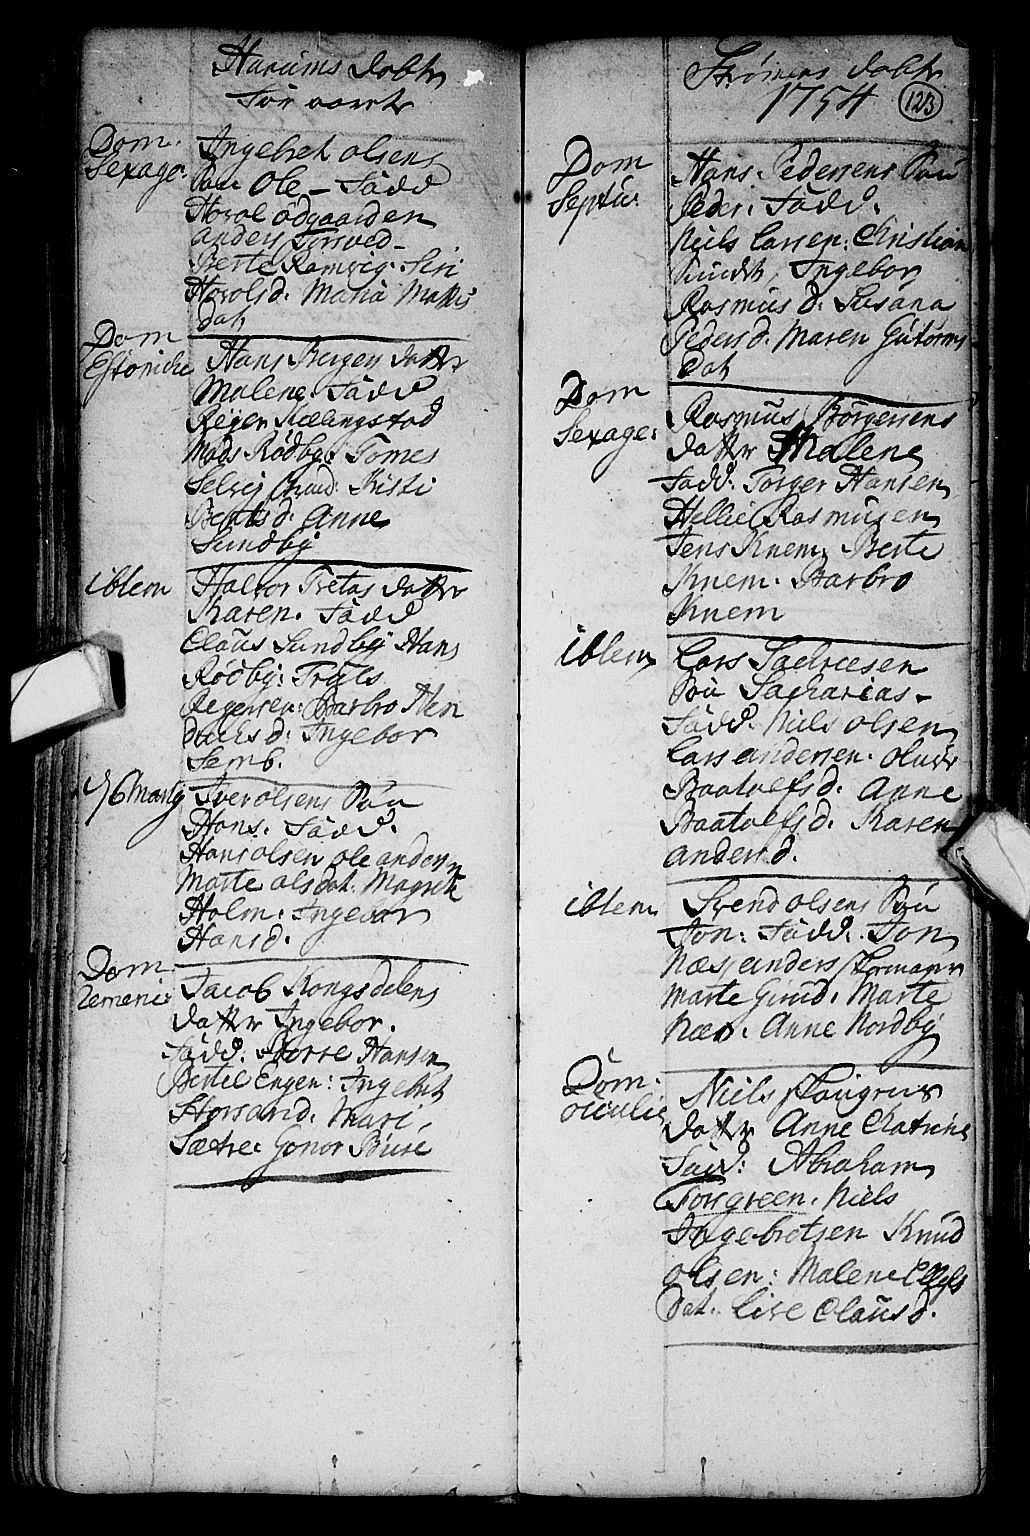 Hurums Dobte
For aaret
Dom.
Sexage:
Ingebret olsens
Søn Ole - Fadd
Horol ødgaarden
anders Torsved -
Berte Ramvig. Siri
Horolsd. Maria Mattis
Dat
Dom
Estomihi
Hans Bergers Datter
Malene. Fadd
Reger Kællingstad
Mads Rødby: Tomes
Selvig Knud: Kisti
Bentsd. Anne
Sundby
ibtem
Halvor Tretas Datter
Karen. Fadd
Claus Sundby Hans
Rødby: Trøls
Regersen: Barbro Hen
drichsd: Ingebor
Semb.
76 Marty
Iver olsens Søn
Hans. Fadd.
Hans olsen ole andersn
Marte olsdat. Magrete
Holm: Ingebor
Hansd.
Dom.
Remenis:
Jacob Kongsdelens
Datter Ingebor.
Fadd. Hansen
Bertel Engen: Ingebret
Storsand. Mari
Sætre: Gonor Bøure
Strømens Dobte
1754
123
Dom
Septu:
Hans. Pedersens Søn
Peder: Fadd.
Niels Larsen: Christian
Knudt, Ingebor
Rasmus d. Susana
Peders d. Maren Gutorms
Dat
Dom
Sexage:
Rasmus Børgersens
Datter Malene
Fadd: Torger Hansen
Hellie Rasmusen
Jens Knem. Berte
Knem. Barbro
Knem
ibtem
Lars Sachriesen
Søn Sacharias -
Fadd. Niels olsen
Lars andersen. oluer
Baatolfs d. Anne
Baatolfs d. Karen
anders d.
ibtem
Svend olsens Søn
Jon: Fadd. Jon
Næs, anders
Marte Girud. Marte
Næs. Anne Nordby
Dom.
oculie
Niels
Datter Anne Catrine
Fadd: Abraham
Torgreen. Niels
Ingebretsen Knud
olsen: Malene Ellefs
Dat. Live Claus d.